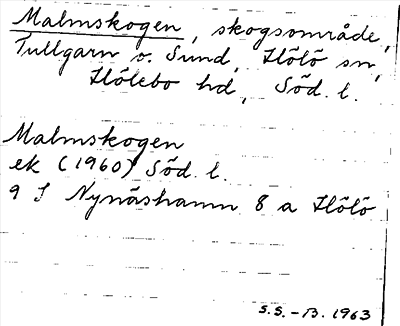 Malmskogen, skogsområde,
Tullgarn o. Sund, Hölö sn,
Hölebo hd, Söd. l.
Malmskogen
ek (1960) Söd. l.
9 I Nynäshamn 8 a Hölö
S.S. - B. 1963